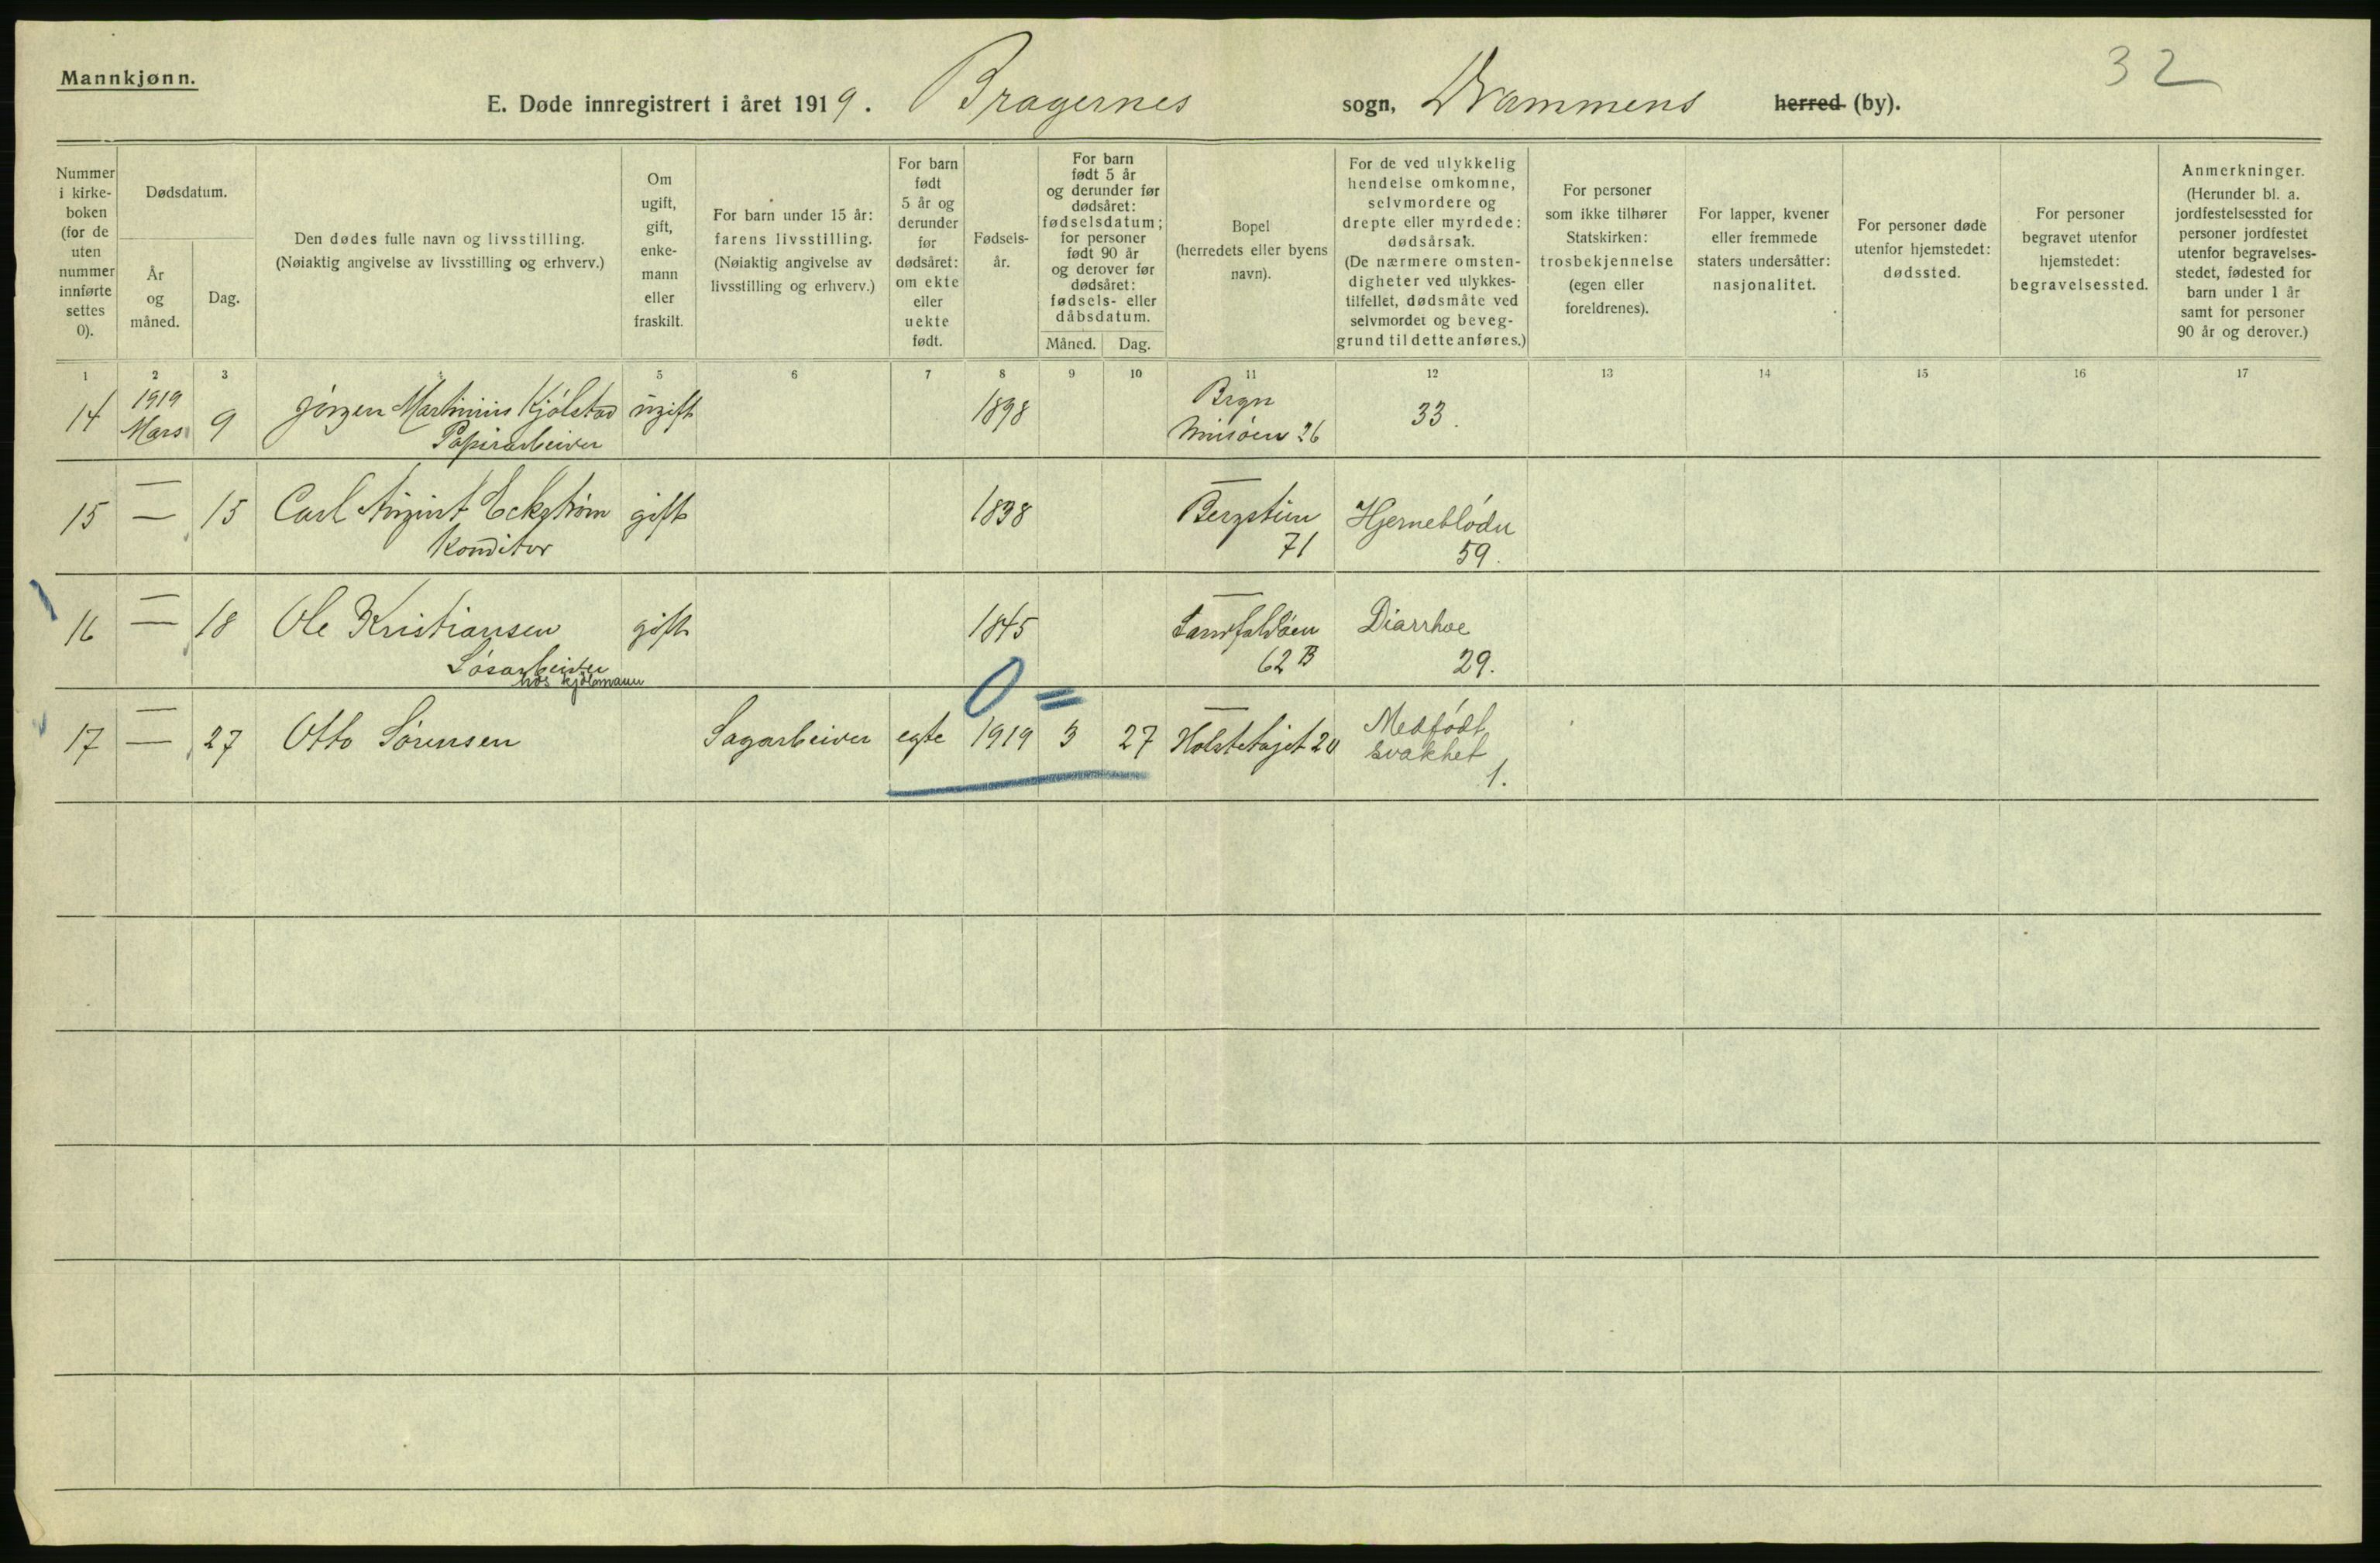 Mannkjønn.
32
E. Døde innregistrert i året 1919. Bragernes sogn, Drammens herred (by).
Nummer i kirke-
boken
(for de
uten
nummer
innførte
settes
0).
Dødsdatum.
År
og
måned.
Dag.
Den dødes fulle navn og livsstilling.
(Nøiaktig angivelse av livsstilling og erhverv.)
Om
ugift,
gift,
enke-
mann
eller
fraskilt.
For barn under 15 år:
farens livsstilling.
(Nøiaktig angivelse av
livsstilling og erhverv.)
For barn
født
5 år og
derunder
før
dødsåret:
om ekte
eller
uekte
født.
Fødsels-
år.
For barn
født 5 år
og derunder før
dødsåret:
fødselsdatum;
for personer
født 90 år
og derover før
dødsåret:
fødsels- eller
dåbsdatum.
Måned. Dag.
Bopel
(herredets eller byens
navn).
For de ved ulykkelig
hendelse omkomne,
selvmordere og
drepte eller myrdede:
dødsårsak.
(De nærmere omsten-
digheter ved ulykkes-
tilfellet, dødsmåte ved
selvmordet og beveg-
grund til dette anføres.)
For personer
som ikke tilhører
Statskirken:
trosbekjennelse
(egen eller
foreldrenes).
For lapper, kvener
eller fremmede
staters undersåtter:
nasjonalitet.
For personer døde
utenfor hjemstedet:
dødssted.
For personer
begravet utenfor
hjemstedet:
begravelsessted.
Anmerkninger.
(Herunder bl. a.
jordfestelsessted for
personer jordfestet
utenfor begravelses-
stedet, fødested for
barn under 1 år
samt for personer
90 år og derover.)
1 2 3 4 5 6 7 8 9 10 11 12 13 14 15 16 17
1919 Brgn
14 Mars 9 Jörgen Martinius Kjölstad ugift 1898 33.
Papirarbeider 26
15 — 15 Carl August Eckström gift 1838 Bergstien Hjerneblödn
Konditor 71 59.
16 — 18 Ole Kristiansen gift 1845 Landfaldöen Diarrhoe
62 B 29.
hos Kjölmann
0 =
17 — 27 Otto Sörensen Sagarbeider egte 1919 3 27 20 Medfödt
svakhet
1.